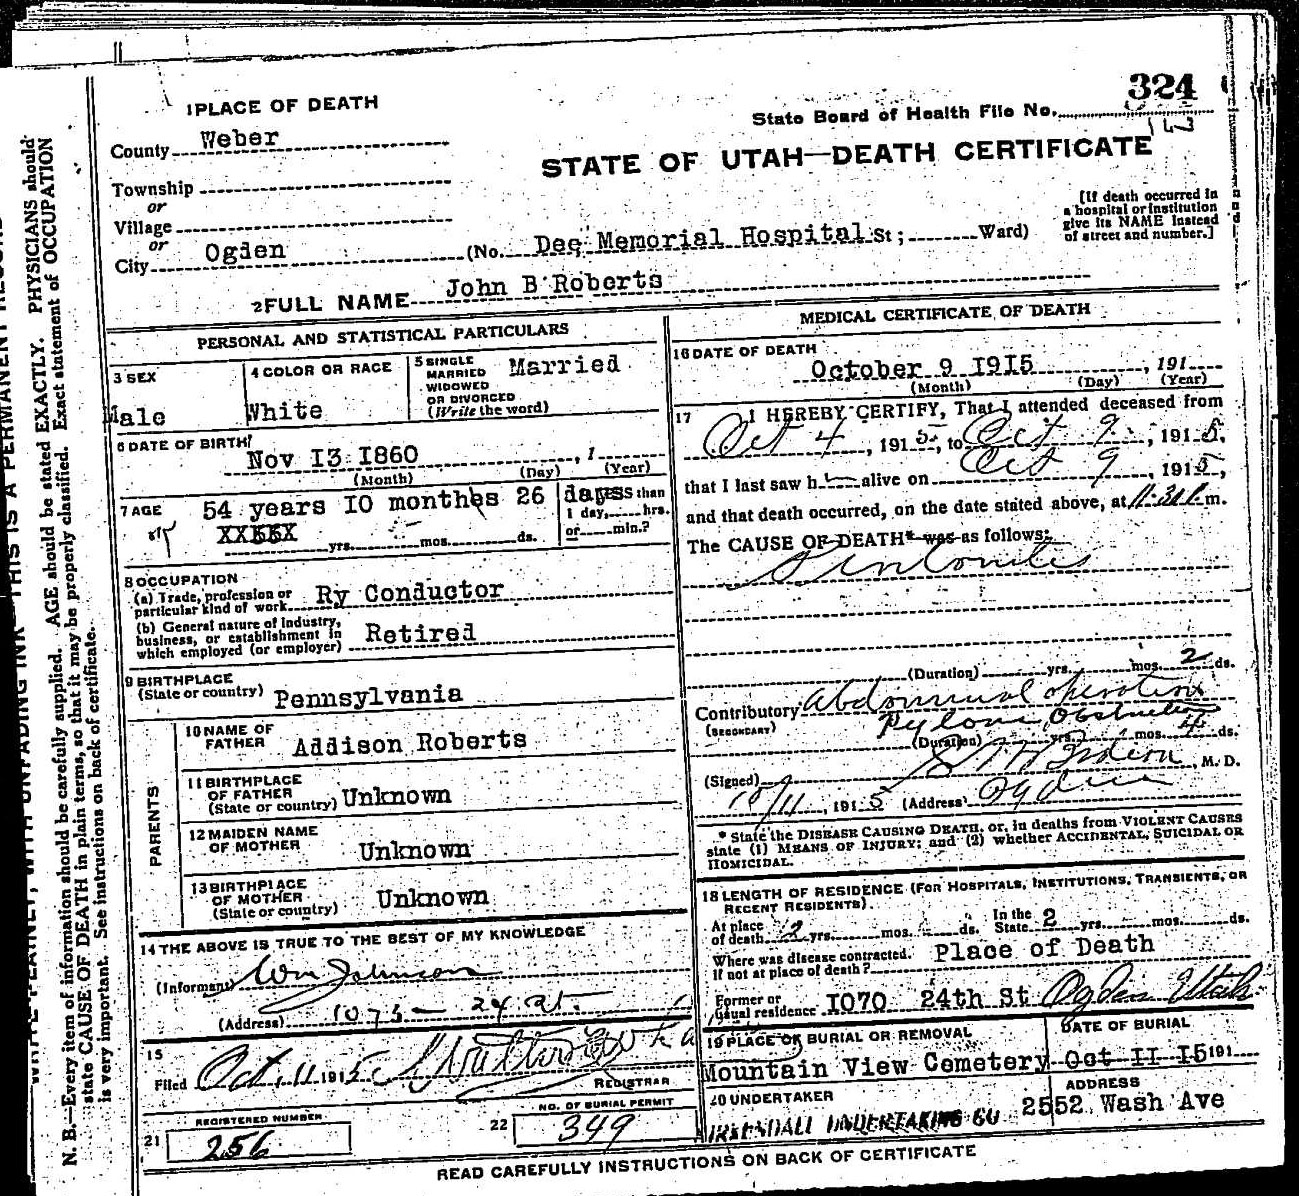 324
State Board of Health File No.
STATE OF UTAH—DEATH CERTIFICATE
1 PLACE OF DEATH
County Weber
Township
or
Village
or
City Ogden (No. Dee Memorial Hospital St; Ward)
[If death occurred in
a hospital or institution
give its NAME instead
of street and number.]
2 FULL NAME John B Roberts
PERSONAL AND STATISTICAL PARTICULARS
3 SEX
Male
4 COLOR OR RACE
White
5 SINGLE
MARRIED
WIDOWED
OR DIVORCED
(Write the word)
Married
6 DATE OF BIRTH
Nov I3 I860 , 1
(Month) (Day) (Year)
7 AGE 54 years I0 monthes 26 days
yrs. mos. ds.
than
1 day, hrs.
or min.?
8 OCCUPATION
(a) Trade, profession or
particular kind of work Ry Conductor
(b) General nature of Industry,
business, or establishment in
which employed (or employer) Retired
9 BIRTHPLACE
(State or country) Pennsylvania
PARENTS
10 NAME OF
FATHER Addison Roberts
11 BIRTHPLACE
OF FATHER
(State or country) Unknown
12 MAIDEN NAME
OF MOTHER Unknown
13 BIRTHPLACE
OF MOTHER
(State or country) Unknown
14 THE ABOVE IS TRUE TO THE BEST OF MY KNOWLEDGE
(Informant) Wm Johnson
(Address) 1075 - 24 st.
15
Filed Oct. 11 1915
REGISTRAR
REGISTERED NUMBER
21 256
NO. OF BURIAL PERMIT
22 349
MEDICAL CERTIFICATE OF DEATH
16 DATE OF DEATH
October 9 I9I5 , 191
(Month) (Day) (Year)
17 I HEREBY CERTIFY, That I attended deceased from
Oct 4, 1915, to Oct 9, 1915,
that I last saw h alive on Oct 9, 1915,
and that death occurred, on the date stated above, at 11:30 P. m.
The CAUSE OF DEATH* was as follows:
(Duration) yrs. mos. 2 ds.
Contributory abdominal operation
(SECONDARY) Pyloric Obstruction
(Duration) yrs. mos. 4 ds.
(Signed) , M. D.
10/11, 1915 (Address) Ogden
* State the DISEASE CAUSING DEATH, or, in deaths from VIOLENT CAUSES
state (1) MEANS OF INJURY; and (2) whether ACCIDENTAL, SUICIDAL OR
HOMICIDAL.
18 LENGTH OF RESIDENCE (FOR HOSPITALS, INSTITUTIONS, TRANSIENTS, OR
RECENT RESIDENTS).
At place
of death yrs. mos. ds.
In the
State 2 yrs. mos. ds.
Where was disease contracted.
If not at place of death? Place of Death
Former or
usual residence I070 24th St Ogden Utah
19 PLACE OF BURIAL OR REMOVAL
Mountain View Cemetery
DATE OF BURIAL
Oct II I5 191
20 UNDERTAKER
UNDERTAKING CO
ADDRESS
2552 Wash Ave
READ CAREFULLY INSTRUCTIONS ON BACK OF CERTIFICATE
WRITE PLAINLY, WITH UNFADING INK—THIS IS A PERMANENT RECORD
N. B.—Every item of information should be carefully supplied. AGE should be stated EXACTLY. PHYSICIANS should
state CAUSE OF DEATH in plain terms, so that it may be properly classified. Exact statement of OCCUPATION
is very important. See instructions on back of certificate.